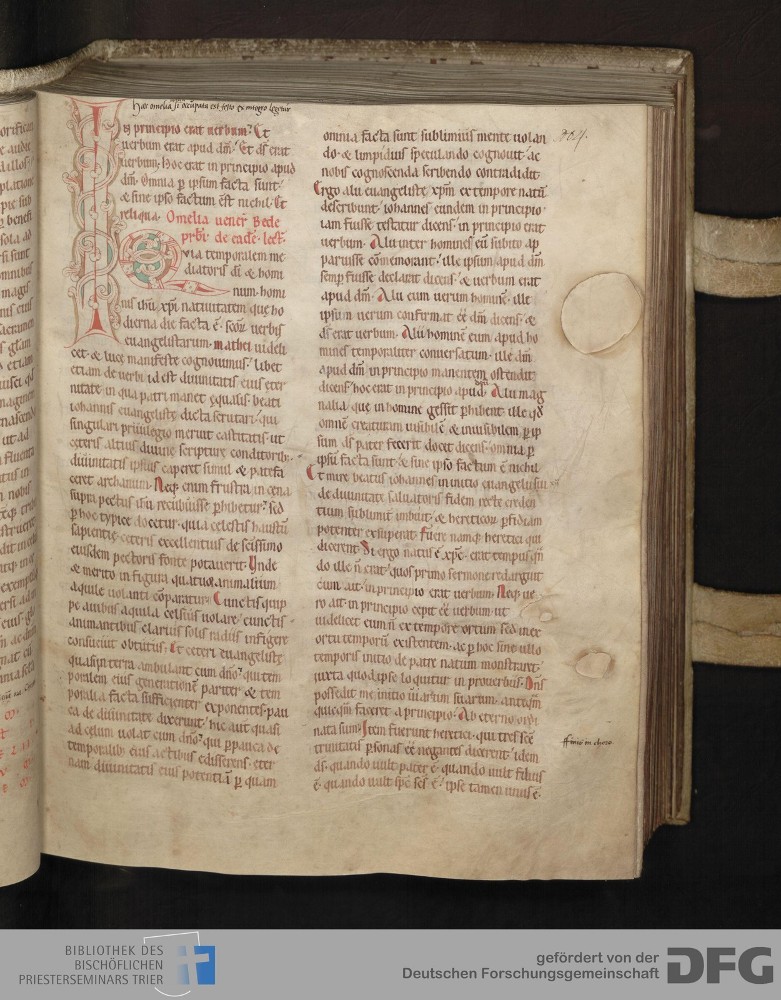 Hec omelia si occupatū est festo ex integro legitur
IN principio erat uerbum. Et
uerbum erat apud dm̄. Et ds̄ erat
uerbum. Hoc erat in principio apud
dm̄. Omnia ꝑ ipsum facta sunt.
& sine ipso factum est nichil. Et
reliqua. Omelia ueneř Bede
prƀri de eadē lect̄.
Quia temporalem me
diatoris dī & homi
num. homi
nis ihū xp̄i natiuitatem que ho
dierna die facta ē. scōꝝ uerbis
euangelistarum. mathei uideli
cet & luce manifeste cognouimus. libet
etiam de uerbi id est diuinitatis eius eter
nitate in qua patri manet ęqualis. beati
iohannis euangelistę dicta scrutari. qui
singulari priuilegio meruit castitatis ut
ceteris altius diuine scripture conditoribꝰ
diuinitatis ipsius caperet simul & patefa
ceret archanum. Neqꝫ enim frustra in cena
supra pectus ihū recubuisse ꝑhibetur. sed
ꝑ hoc typice docetur. quia celestis haustū
sapientię ceteris excellentius de scissimo
eiusdem pectoris fonte potauerit. Vnde
& merito in figura quatuor animalium
aquile uolanti cōparatur. Cunctis quip
pe auibus aquila celsius uolare. cunctis
animantibus clarius solis radiis infigere
consueuit obtutus. Et ceteri euangelistę
quasi in terra ambulant cum dn̄o. qui tem
poralem eius generationē pariter & tem
poralia facta sufficienter exponentes. pau
ca de diuinitate dixerunt. hic aut̄ quasi
ad celum uolat cum dn̄o. qui ꝑpauca de
temporalibꝰ eius actibus edisserens. eter
nam diuinitatis eius potentiā ꝑ quam
omnia facta sunt sublimius mente uolan
do. & limpidius speculando cognouit ac
nobis cognoscenda scribendo contradidit.
Ergo alii euangeliste xp̄m ex tempore natū
describunt. iohannes eundem in principio
iam fuisse testatur dicens. in principio erat
uerbum. Alii inter homines eū subito ap
paruisse cōmemorant. ille ipsum apud dm̄
semꝑ fuisse declarat dicens. & uerbum erat
apud dm̄. Alii eum uerum hominē. ille
ipsum uerum confirmat eē dm̄ dicens. &
ds̄ erat uerbum. Alii hominē eum apud ho
mines temporaliter conuersatum. ille dm̄
apud dm̄ in principio manentem ostendit
dicens. hoc erat in principio apud dm̄. Alii mag
nalia que in homine gessit ꝑhibent. ille qđ
omnē creaturam uisibilē & inuisibilem ꝑ ip
sum ds̄ pater fecerit docet dicens. omnia ꝑ
ipsū facta sunt. & sine ipso factum ē nichil.
Et mire beatus iohannes in initio euangelii sui
de diuinitate saluatoris fidem recte creden
tium sublimit̄ imbuit. & hereticoꝝ ꝑfidiam
potenter exsuperat. Fuere namqꝫ heretici qui
dicerent. Si ergo natus ē xp̄c. erat tempus qn̄
do ille n̄ erat. quos primo sermone redarguit
cum ait. in principio erat uerbum. Neqꝫ ue
ro ait. in principio cepit eē uerbum. ut
uidelicet eum n̄ ex tempore ortum sed in ex
ortu temporū existentem. ac ꝑ hoc sine ullo
temporis initio de patre natum monstraret.
iuxta quod ipse loquitur in prouerbiis. Dn̄s
possedit me initio uiarum suarum. anteqm̄
quicqm̄ faceret a principio. Ab eterno ordi
nata sum. Item fuerunt heretici. qui tres scē
trinitatis ꝑsonas eē negantes dixerent. idem
ds̄. quando uult pater ē. quando uult filius
ē. quando uult sp̄c sc̄s ē. ipse tamen unus ē.
ffinis in choro.
BIBLIOTHEK DES
BISCHÖFLICHEN
PRIESTERSEMINARS TRIER
gefördert von der
Deutschen Forschungsgemeinschaft
DFG